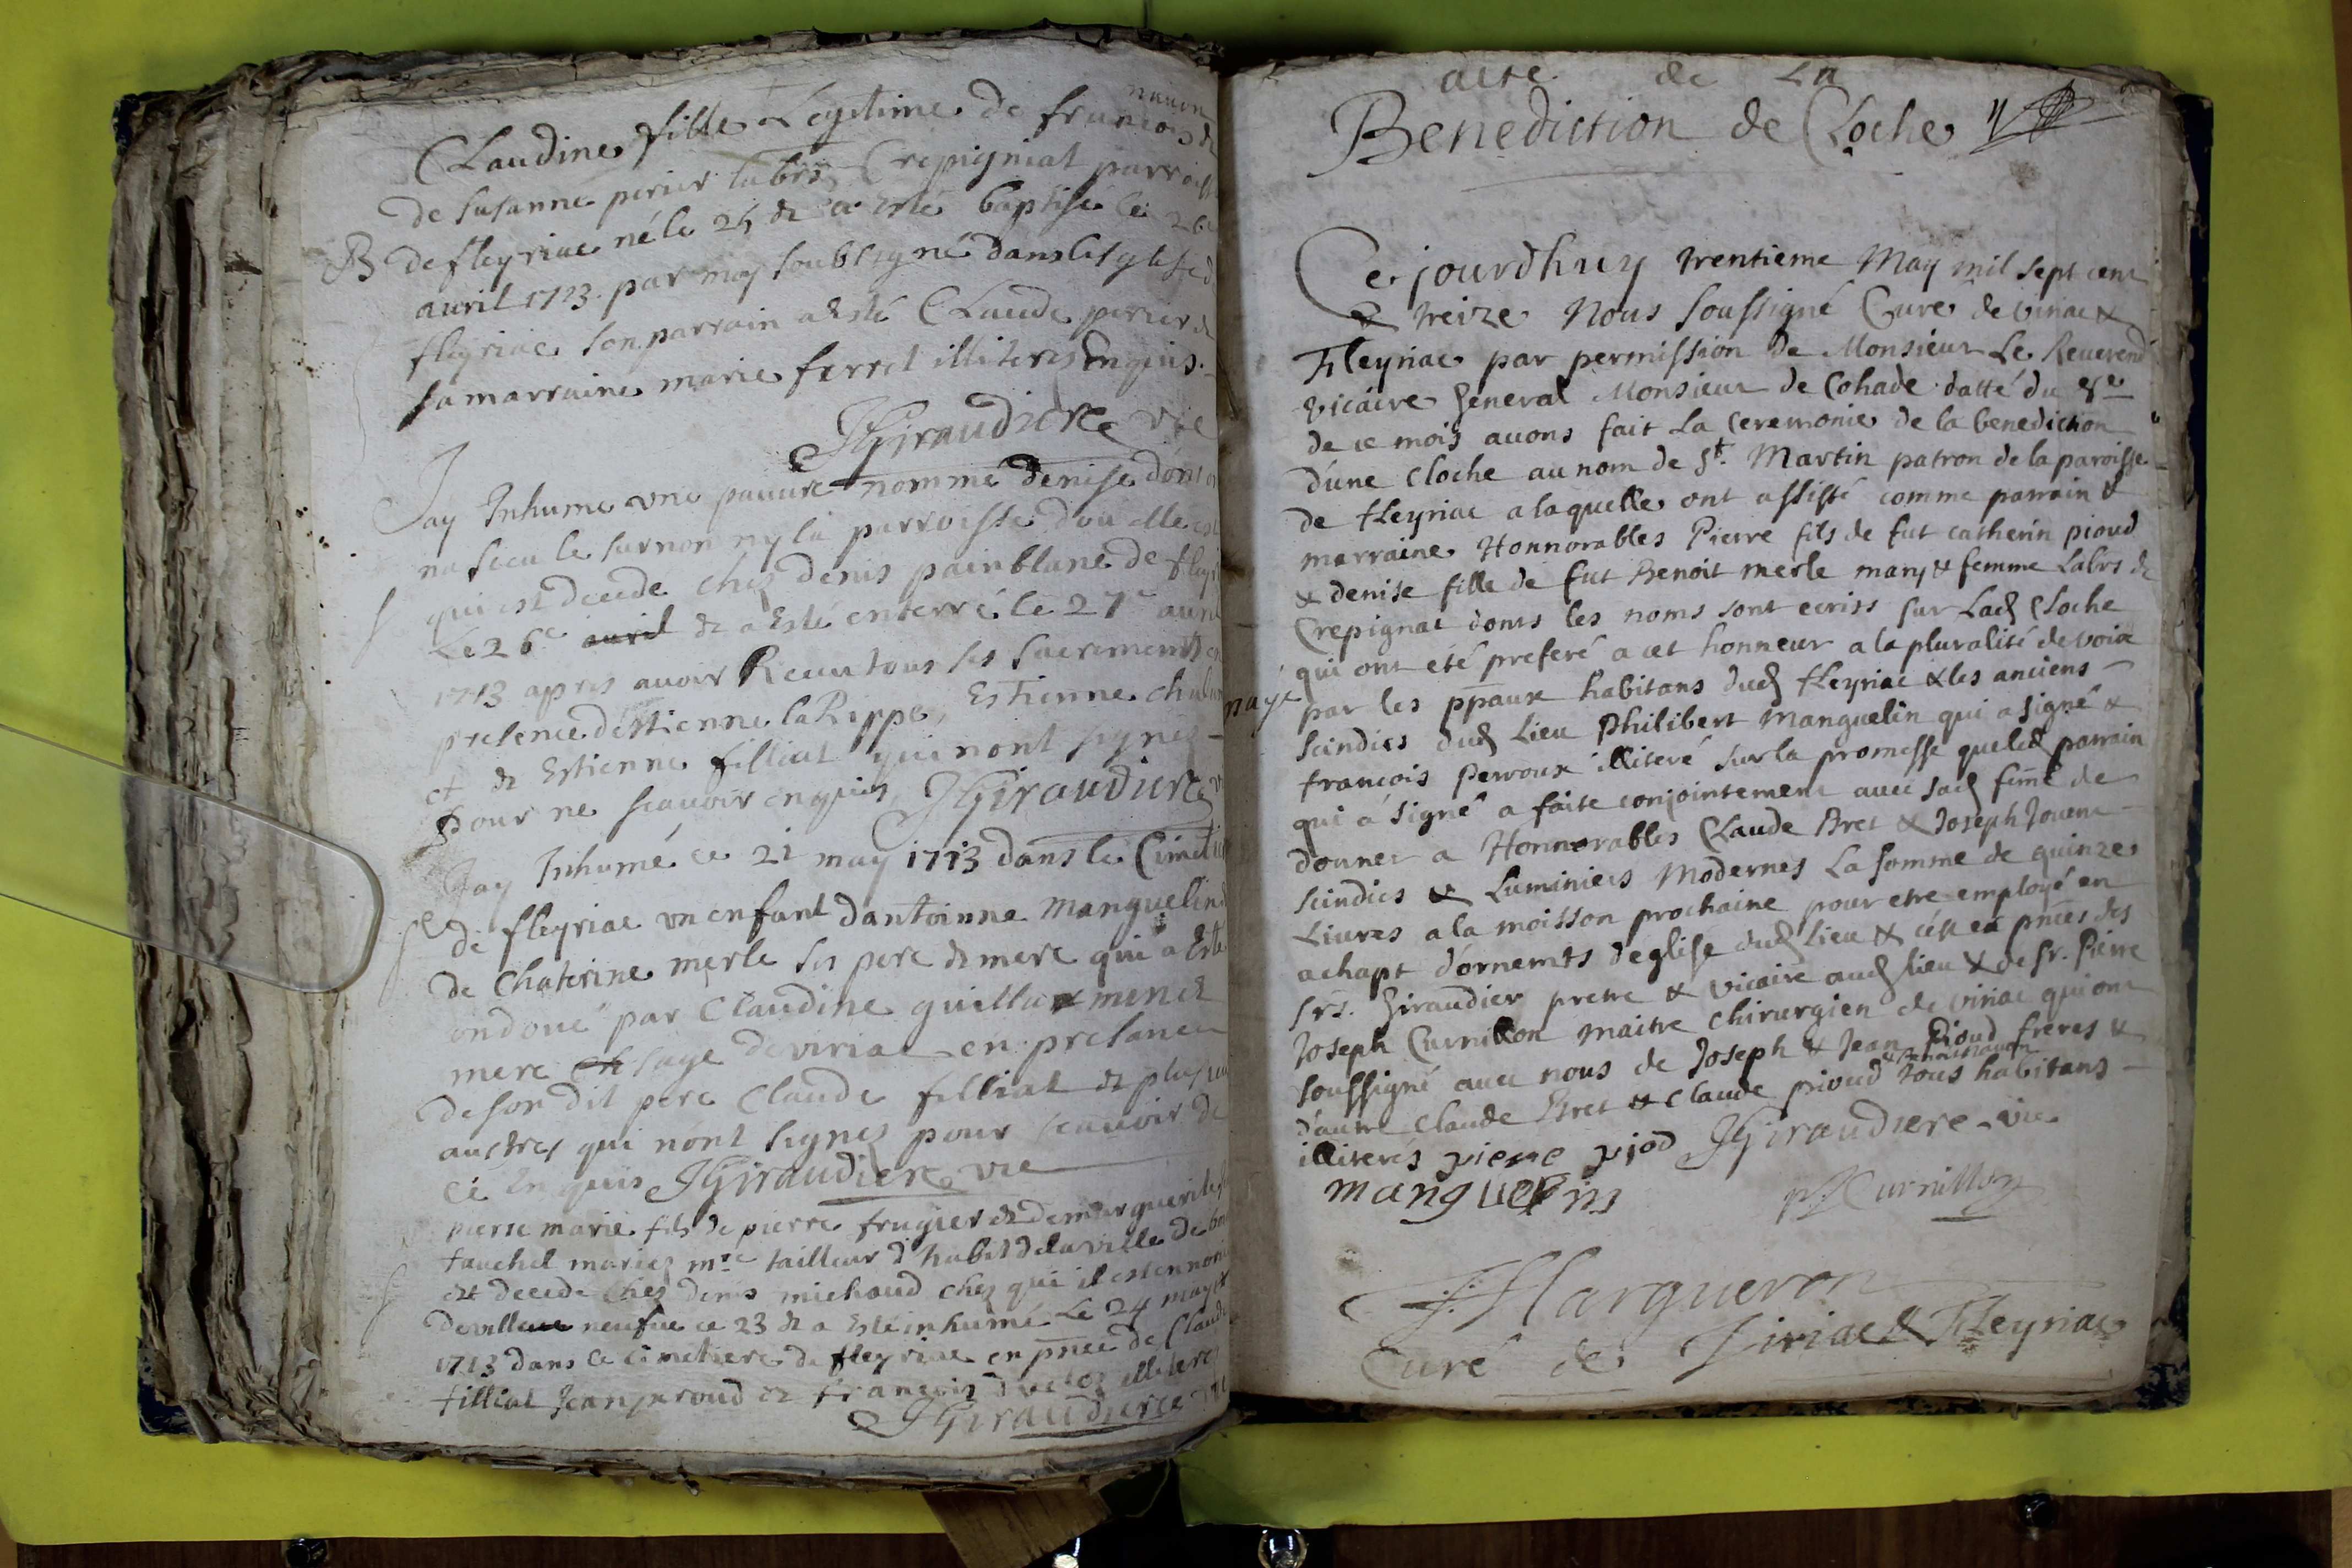 Claudine fille Legitime de francois
de susanne perier labrs Crepigniat parroisse
B de fleyriac né le 25 & a esté baptisé le 26
auril 1713. par moy soubsigné dans lesglise de
fleyriac son parrain a esté Claude perier &
sa marraine marie ferret illiteres Enquis.
JGiraudiere vic
Jay Inhume une pauure nomme denise dont on
na sceu le surnom ny la parroisse dou elle est
qui est decede chez denis painblanc de
Le 26e auril & a esté enterré le 27e auril
1713 apres auoir Receu tous les sacrements en
presence destienne la Rippe, Estienne
et & Estienne filliat qui nont signes
pour ne scauoir enquis JGiraudiere
Jay Inhumé ce 21 may 1713 dans le
de fleyriac un enfant dantoinne Manguelin
de Chaterine merle ses pere & mere qui a Esté
ondoué par Claudine
mere sage de viriac en presance
de son dit pere Claude filliat &
austres qui nont signes pour scauoir de
ce Enquis JGiraudiere vic
pierre marie fils de pierre frugier & de marguerite
fauchel mariez mre tailleur d'habit de la ville de
est decede chez denis michaud chez qui il est en
de ville neufue ce 23 & a esté inhumé Le 24 may
1713 dans le cimetiere de fleyriac en pnce de Claude
filliat Jean peroud & francois illiteres
JGiraudiere
acte de La
Benediction de Cloche
Ce jourdhuy trentieme May mil sept cent
& treize Nous soussigné Curé de viriac &
Fleyriac par permission de Monsieur Le Reuerend
vicaire General Monsieur de Cohade datté du 8e
de ce mois auons fait La Ceremonie de la benediction
d'une cloche au nom de St. Martin patron de la paroisse
de fleyriac a laquelle ont assisté comme parrain &
marraine Honnorables Pierre fils de fut catherin pioud
& denise fille de fut Benoit merle mary & femme Labrs de
Crepignat donts les noms sont ecriss sur Lad Cloche
qui ont été preferé a cet honneur a la pluralité de voix
par les ppaux habitans dud fleyriac & les anciens
scindics dud Lieu Philibert Manguelin qui a signé &
francois Perroux illiteré sur la promesse queled parrain
qui á signé a faite conjointement auec sad feme de
donner a Honnorables Claude Bret & Joseph Jouent
scindics & Luminiers Modernes La somme de quinze
Liures a la moisson prochaine pour etre employé en
achapt dórnemts d'eglise dud Lieu & cést en pnces des
srs. Giraudier pretre & vicaire aud lieu & de sr. Pierre
Joseph Curnillon maitre chirurgien de viriac qui ont
soussigné auec nous de Joseph & Jean Pioud freres &
& Benoit Nauon
d'autre Claude Bret & Claude pioud tous habitans
illiterés pierre pjod JGiraudiere vic
manguelin PJCurnillon
J. Margueron
Curé de Viriac & Fleyriac